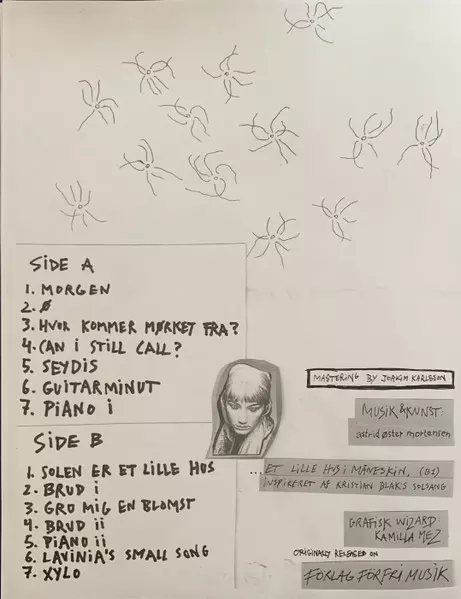 SIDE A
1. MORGEN
2. Ø
3. HVOR KOMMER MØRKET FRA?
4. CAN I STILL CALL?
5. SEYDIS
6. GUITARMINUT
7. PIANO i
SIDE B
1. SOLEN ER ET LILLE HUS
2. BRUD i
3. GRO MIG EN BLOMST
4. BRUD ii
5. PIANO ii
6. LAVINIA'S SMALL SONG
7. XYLO
MASTERING BY JOAKIM KARLSSON
MUSIK & KUNST:
astrid øster mortensen
...ET LILLE HUS i MÅNESKIN, (B1)
INSPIRERET AF KRISTIAN BLAK'S SOLSANG
GRAFISK WIZARD:
KAMILLA MEZ
ORIGINALLY RELEASED ON
FÖRLAG FÖR FRI MUSIK